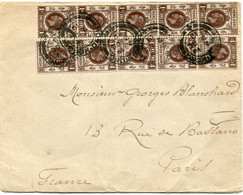 Monsieur Georges Blanchard
13 Rue de Bassano
Paris
France